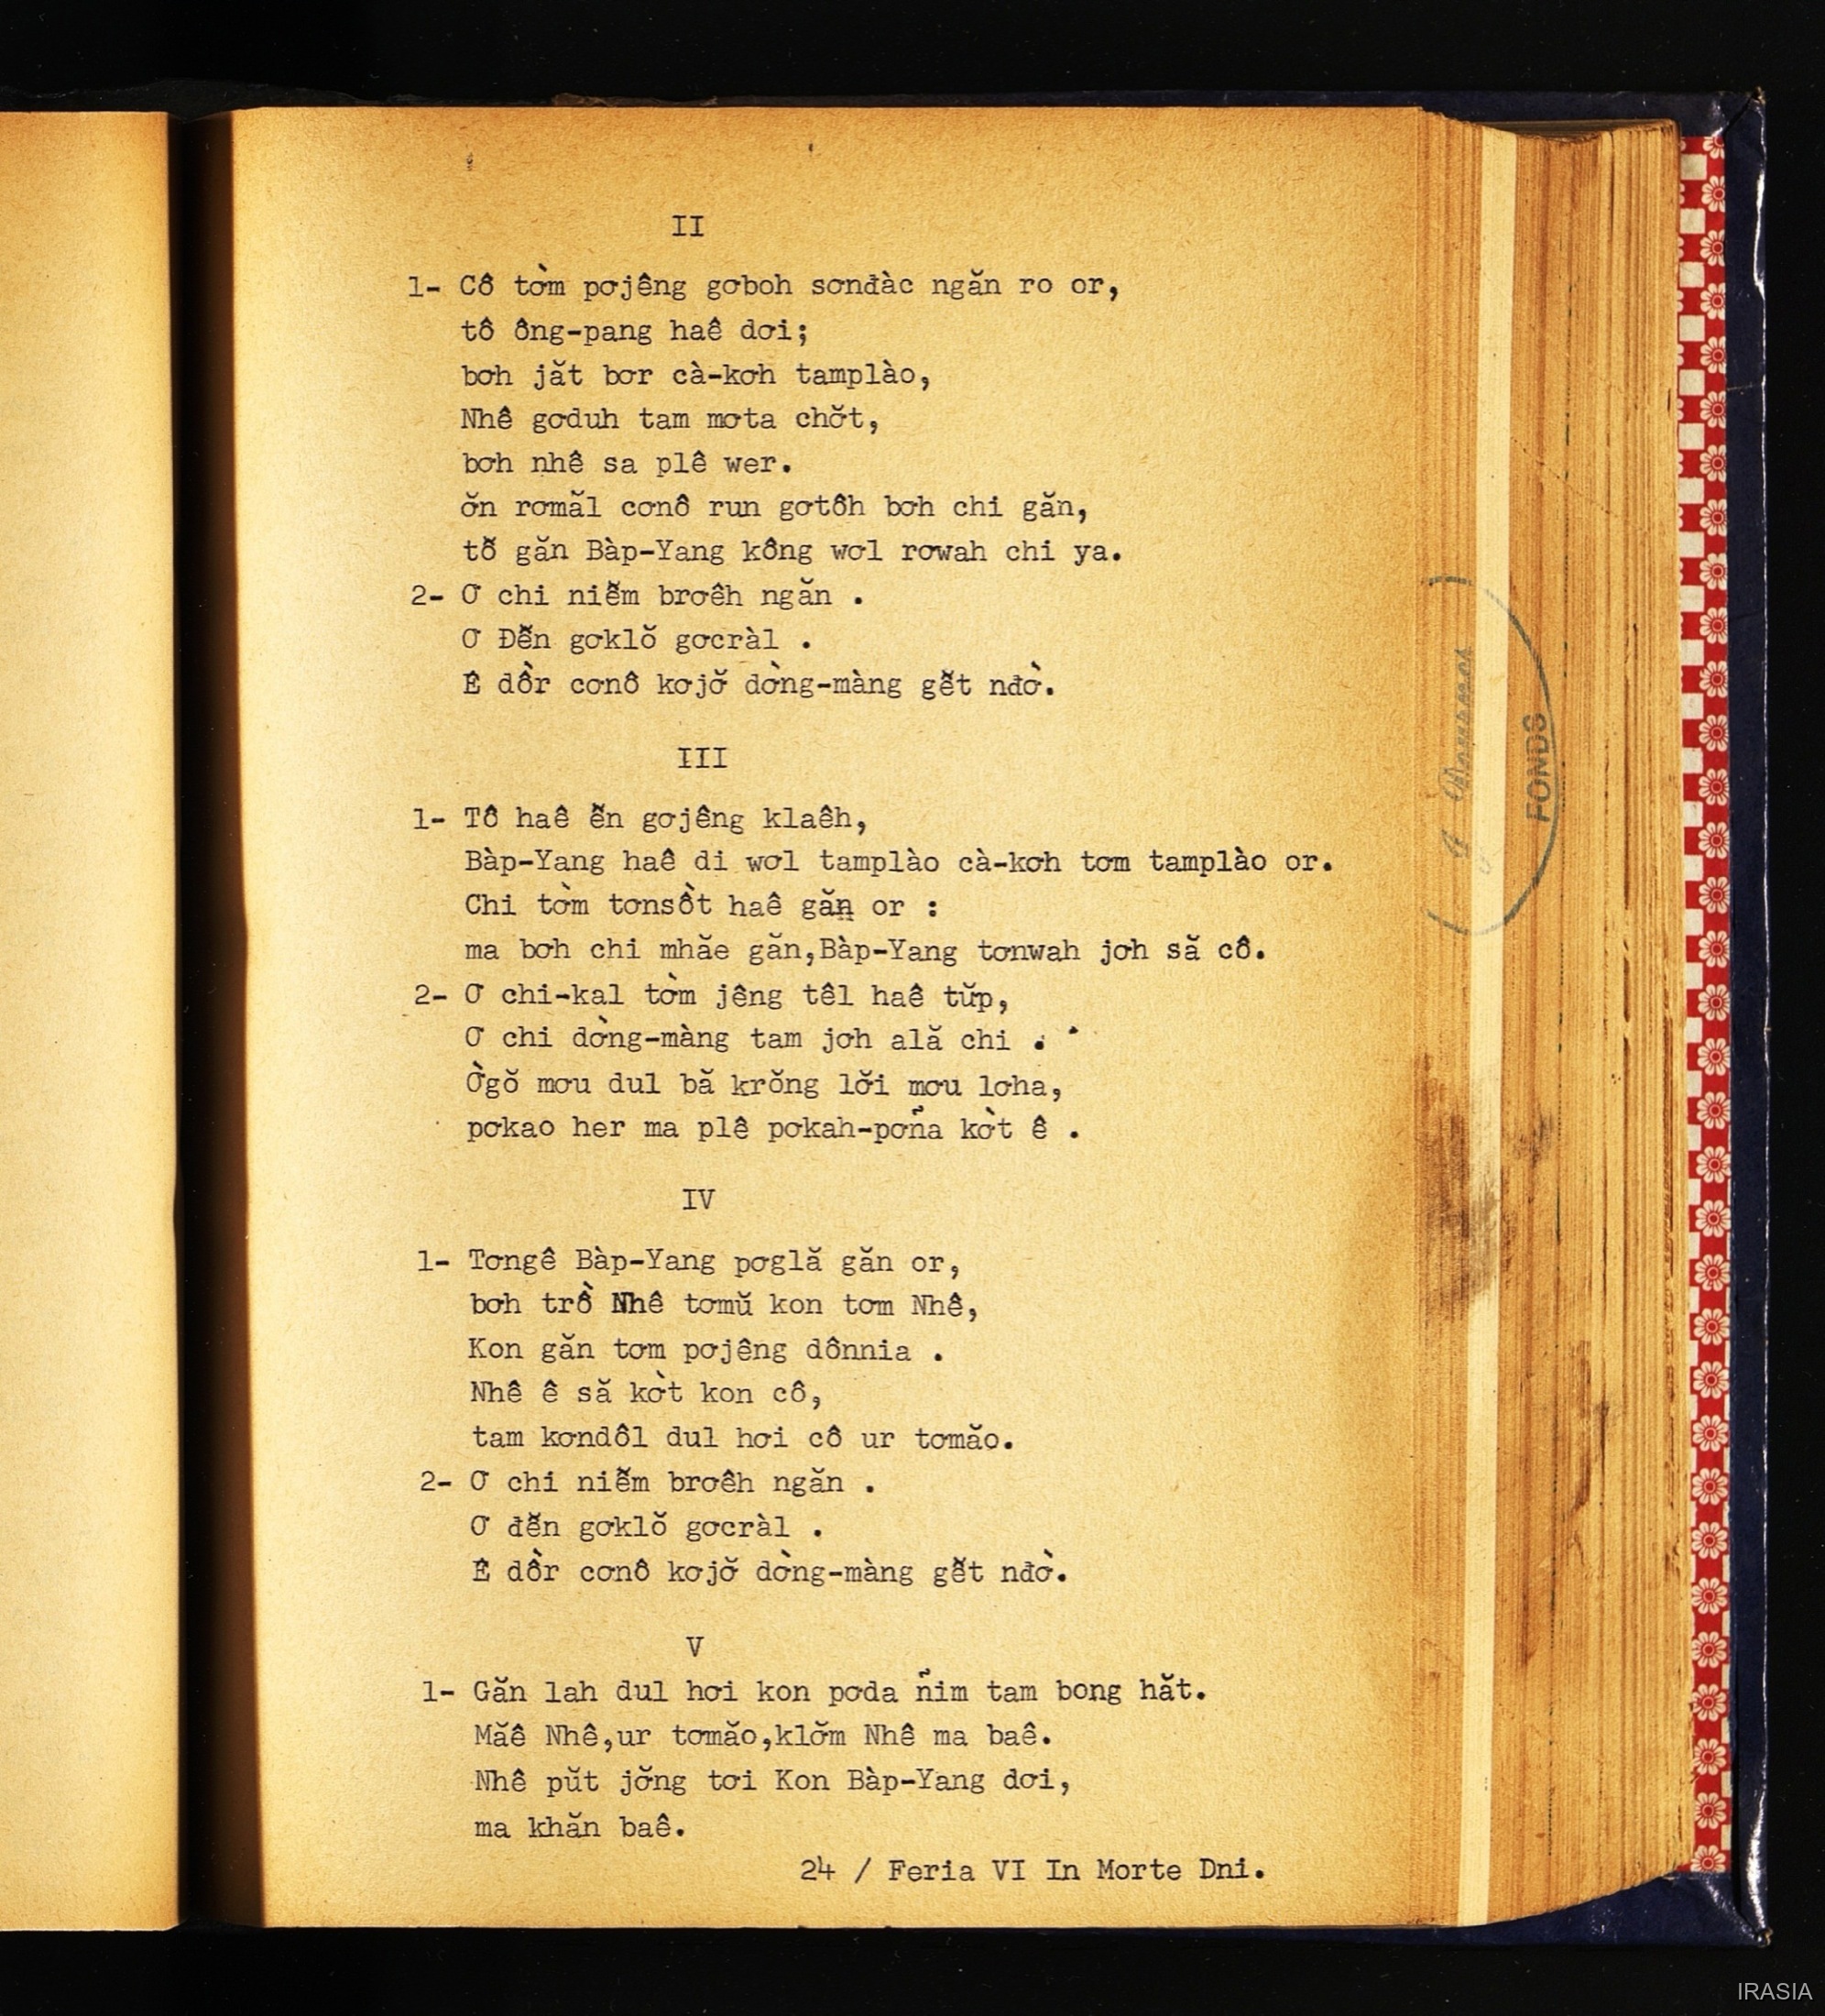 II
1- Cô tờm pơjêng gơboh sơnđàc ngăn ro or,
tô ông-pang haê dơi;
bơh jăt bơr cà-kơh tamplào,
Nhê gơduh tam mơta chơ̆t,
bơh nhê sa plê wer.
ơ̆n rơmăl cơnô run gơtôh bơh chi găn,
tô̆ găn Bàp-Yang kông wơl rơwah chi ya.
2- Ơ chi niê̆m brơêh ngăn .
Ơ Đê̆n gơklŏ gơcràl .
Ê dồr cơnô kơjơ̆ dờng-màng gê̆t nđờ.
III
1- Tô haê ê̆n gơjêng klaêh,
Bàp-Yang haê di wơl tamplào cà-kơh tơm tamplào or.
Chi tờm tơnsồt haê găn or :
ma bơh chi mhăe găn,Bàp-Yang tơnwah jơh să cô.
2- Ơ chi-kal tờm jêng têl haê tŭp,
Ơ chi dờng-màng tam jơh ală chi .
Ờgŏ mơu dul bă krŏng lơ̆i mơu lơha,
pơkao her ma plê pơkah-pơña kờt ê .
IV
1- Tơngê Bàp-Yang pơglă găn or,
bơh trồ Nhê tơmŭ kon tơm Nhê,
Kon găn tơm pơjêng dônnia .
Nhê ê să kờt kon cô,
tam kơndôl dul hơi cô ur tơmăo.
2- Ơ chi niê̆m brơêh ngăn .
Ơ đê̆n gơklŏ gơcràl .
Ê dồr cơnô kơjơ̆ dờng-màng gê̆t nđờ.
V
1- Găn lah dul hơi kon pơda ñim tam bong hăt.
Măê Nhê,ur tơmăo,klơ̆m Nhê ma baê.
Nhê pŭt jơ̆ng tơi Kon Bàp-Yang dơi,
ma khăn baê.
24 / Feria VI In Morte Dni.
FONDS
IRASIA